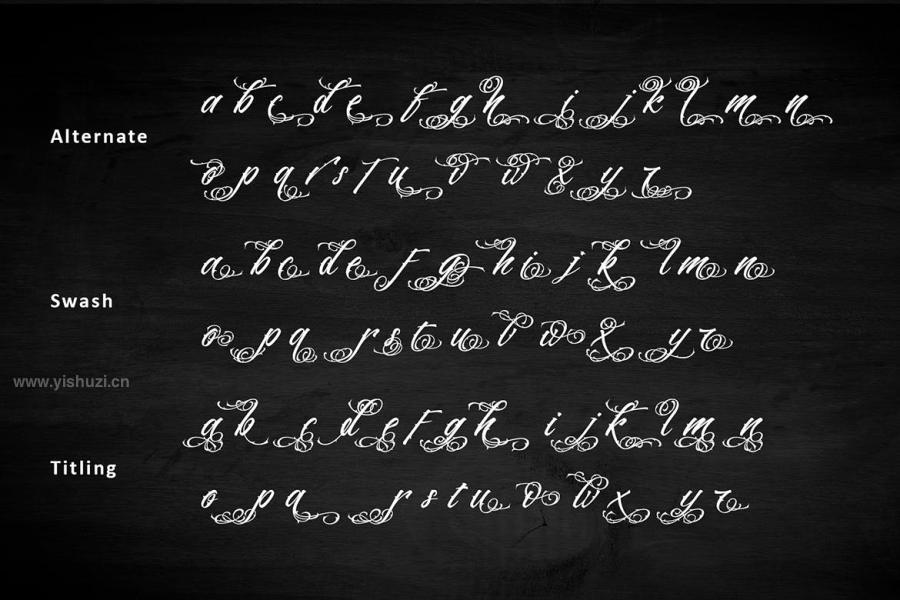 Alternate
a b c d e f g h i j k l m n
o p q r s t u v w x y z
Swash
a b c d e f g h i j k l m n
o p q r s t u v w x y z
www.yishuzi.cn
Titling
a b c d e f g h i j k l m n
o p q r s t u v w x y z